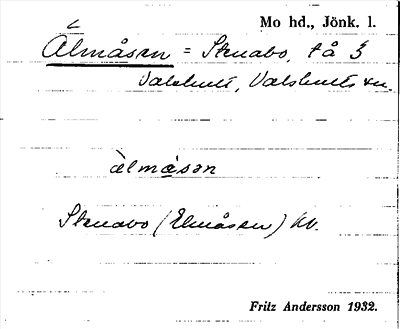 Mo hd., Jönk. l.
Älmåsen = Stenabo, få ⅔
Valshult, Valshults sn.
àlmåsən
Stenabo (Elmåsen) kv.
Fritz Andersson 1932.